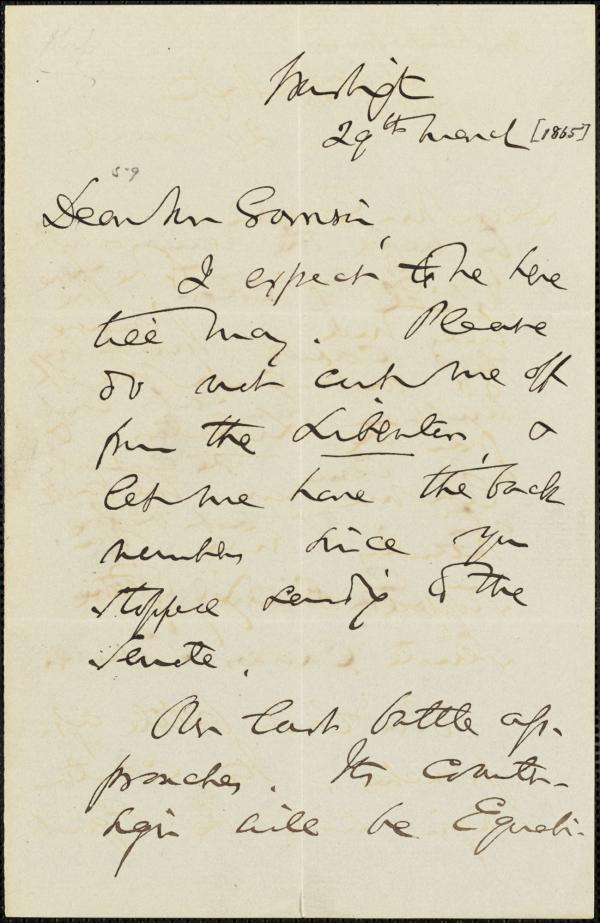 Washigt
29th March [1865]
59
Dear Mr Garrison,
I expect to be here
till May. Please
do not cut me off
from the Liberator, &
let me have the back
numbers since you
stopped sending to the
Senate.
Our last battle ap-
proaches. Its counter-
sign will be Equali-